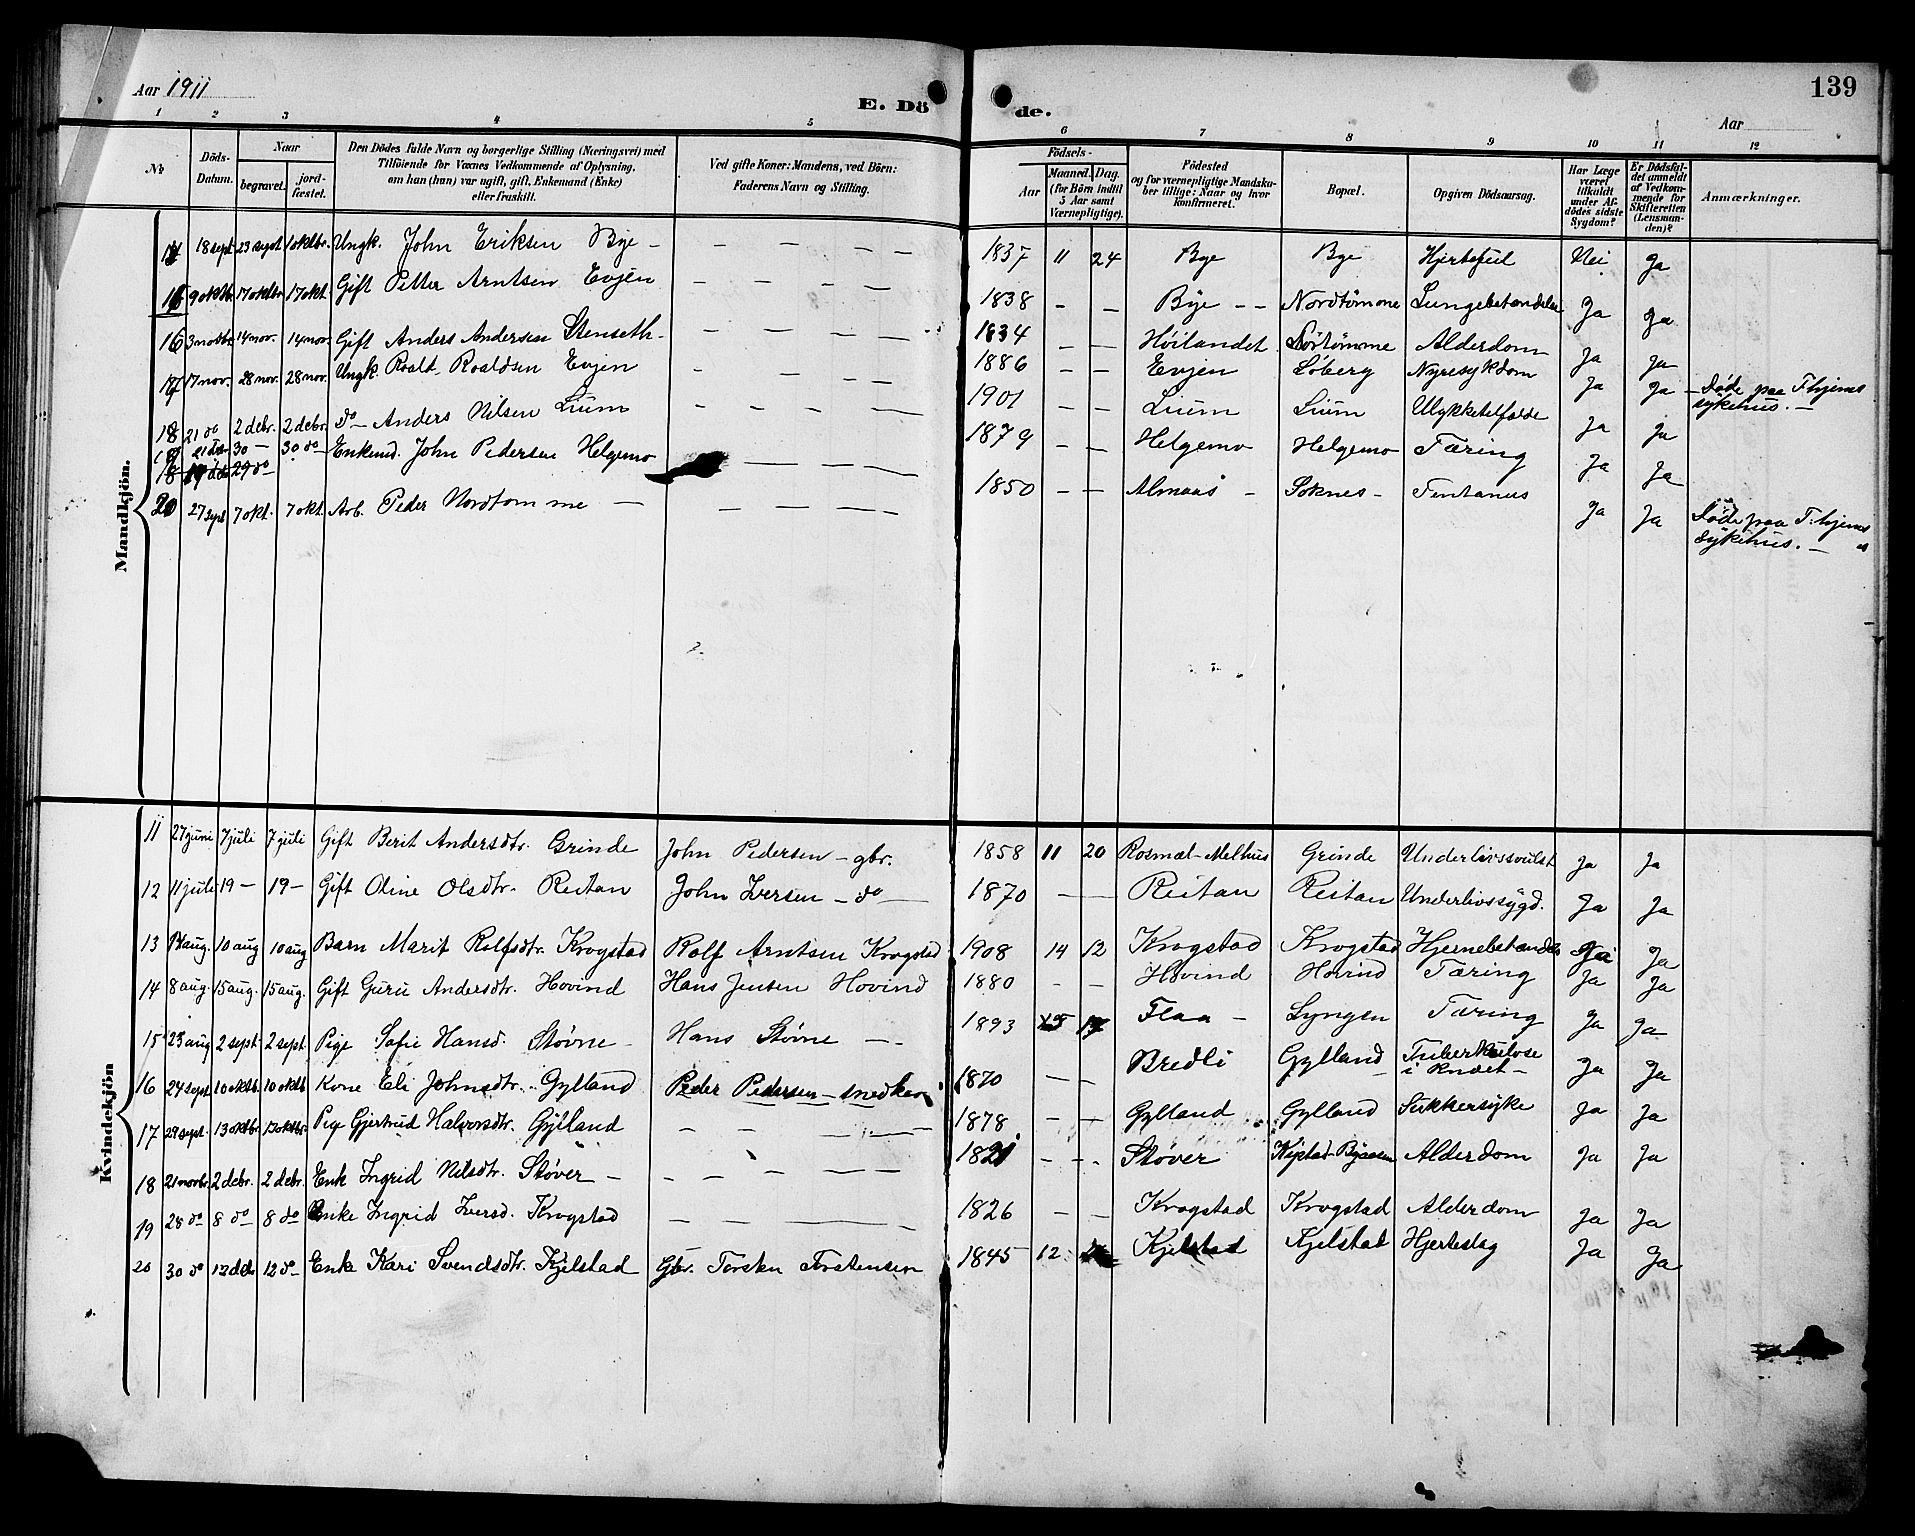 Aar 1911
E. Dö de.
139
Aar
1 2 3 4 5 6 7 8 9 10 11 12
No
Döds-Datum.
Naar
begravet.
jord-fæstet.
Den Dödes fulde Navn og borgerlige Stilling (Næringsvei) med Tilföiende for Voxnes Vedkommende af Oplysning, om han (hun) var ugift, gift, Enkemand (Enke) eller fraskilt.
Ved gifte Koner: Mandens, ved Börn: Faderens Navn og Stilling.
Födsels-
Aar
Maaned.
Dag.
(for Börn indtil 5 Aar samt Værnepligtige).
Födested og for værnepligtige Mandskaber tillige: Naar og hvor konfirmeret.
Bopæl.
Opgiven Dödsaarsag.
Har Læge været tilkaldt under Afdödes sidste Sygdom?
Er Dödsfaldet anmeldt af Vedkommende for Skifteretten (Lensmanden)?
Anmærkninger.
Mandkjön.
18 sept 23 sept 1 oktbr. Ungk. John Eriksen Bye - — — — — 1837 11 24 Bye Bye Hjertefeil Nei Ja
9 oktbr 17 oktbr 17 okt. Gift Petter Arntsen Evjen — — — — 1838 - — Bye - - Nordtømme Lungebetændelse Ja Ja
16 3 novbr. 14 nov. 14 nov. Gift Anders Andersen Stenseth - — — — — 1834 — — Høilandet Sörtømme Alderdom Ja Ja
17 17 nov. 28 nov. 28 nov. Ungk. Roalt Roaldsen Evjen - — — — 1886 - - Evjen Løberg Nyresykdom Ja Ja Døde paa T.hjems sykehus. —
18 21 do 2 debr. 2 debr. do - Anders Nilsen Lium - — — — 1901 - - Lium Lium Ulykketilfælde Ja Ja
30 — 30 do - Enkemd. John Pedersen Helgemo — — — 1879 - - Helgemo Helgemo Tæring Ja Ja
18 29 do
20 27 sept 7 okt. 7 okt. Arb. Peder Nordtømme — — — — — 1850 - — Almaas - Soknes - Tentanus Ja Ja Døde paa T.hjems sykehus. —
Kvindekjön
11 27 juni 7 juli 7 juli Gift Berit Andersdtr. Grinde John Pedersen - gbr. 1858 11 20 Rosmæl - Melhus Grinde Underlivssvulst Ja Ja
12 11 juli 19 — 19 — Gift Oline Olsdtr. Reitan John Iversen - do — 1870 — — Reitan Reitan Underlivssygd. Ja Ja
13 aug. 10 aug 10 aug Barn Marit Rolfsdtr. Krogstad Rolf Arntsen Krogstad 1908 14 12 Krogstad Krogstad Hjernebetændelse Ja Ja
14 8 aug. 15 aug. 15 aug. Gift Guru Andersdtr. Hovind Hans Jensen Hovind 1880 - — Hovind Hovind Tæring Ja Ja
15 23 aug 2 sept. 2 sept. Pige Sofie Hansd. Støvne - Hans Støvne — - 1893 Flaa - Lyngen Tæring Ja Ja
16 24 sept 10 oktb. 10 oktb Kone Eli Johnsdtr. Gylland Peder Pedersen - snedker 1870 — - Bredli Gylland Tuberkulose i knæet - Ja Ja
17 29 sept. 13 oktbr. 13 oktbr. Pige Gjertrud Halvorsdtr. Gylland - - — — — 1878 - - Gylland Gylland Sukkersyke Ja Ja
18 21 novbr. 2 debr. 2 debr. Enk Ingrid Nilsdtr. Støver — - - — — — 1821 - - - Støver Byaasen Alderdom Ja Ja
19 28 do 8 do 8 do Enke Ingrid Iversd. Krogstad — - — — — 1826 - - Krogstad Krogstad Alderdom Ja Ja
20 30 do 12 debr 12 do Enke Kari Svendsdtr. Kjelstad Gbr. Torsten Torstensen 1845 12 Kjelstad Kjelstad Hjerteslag Ja Ja